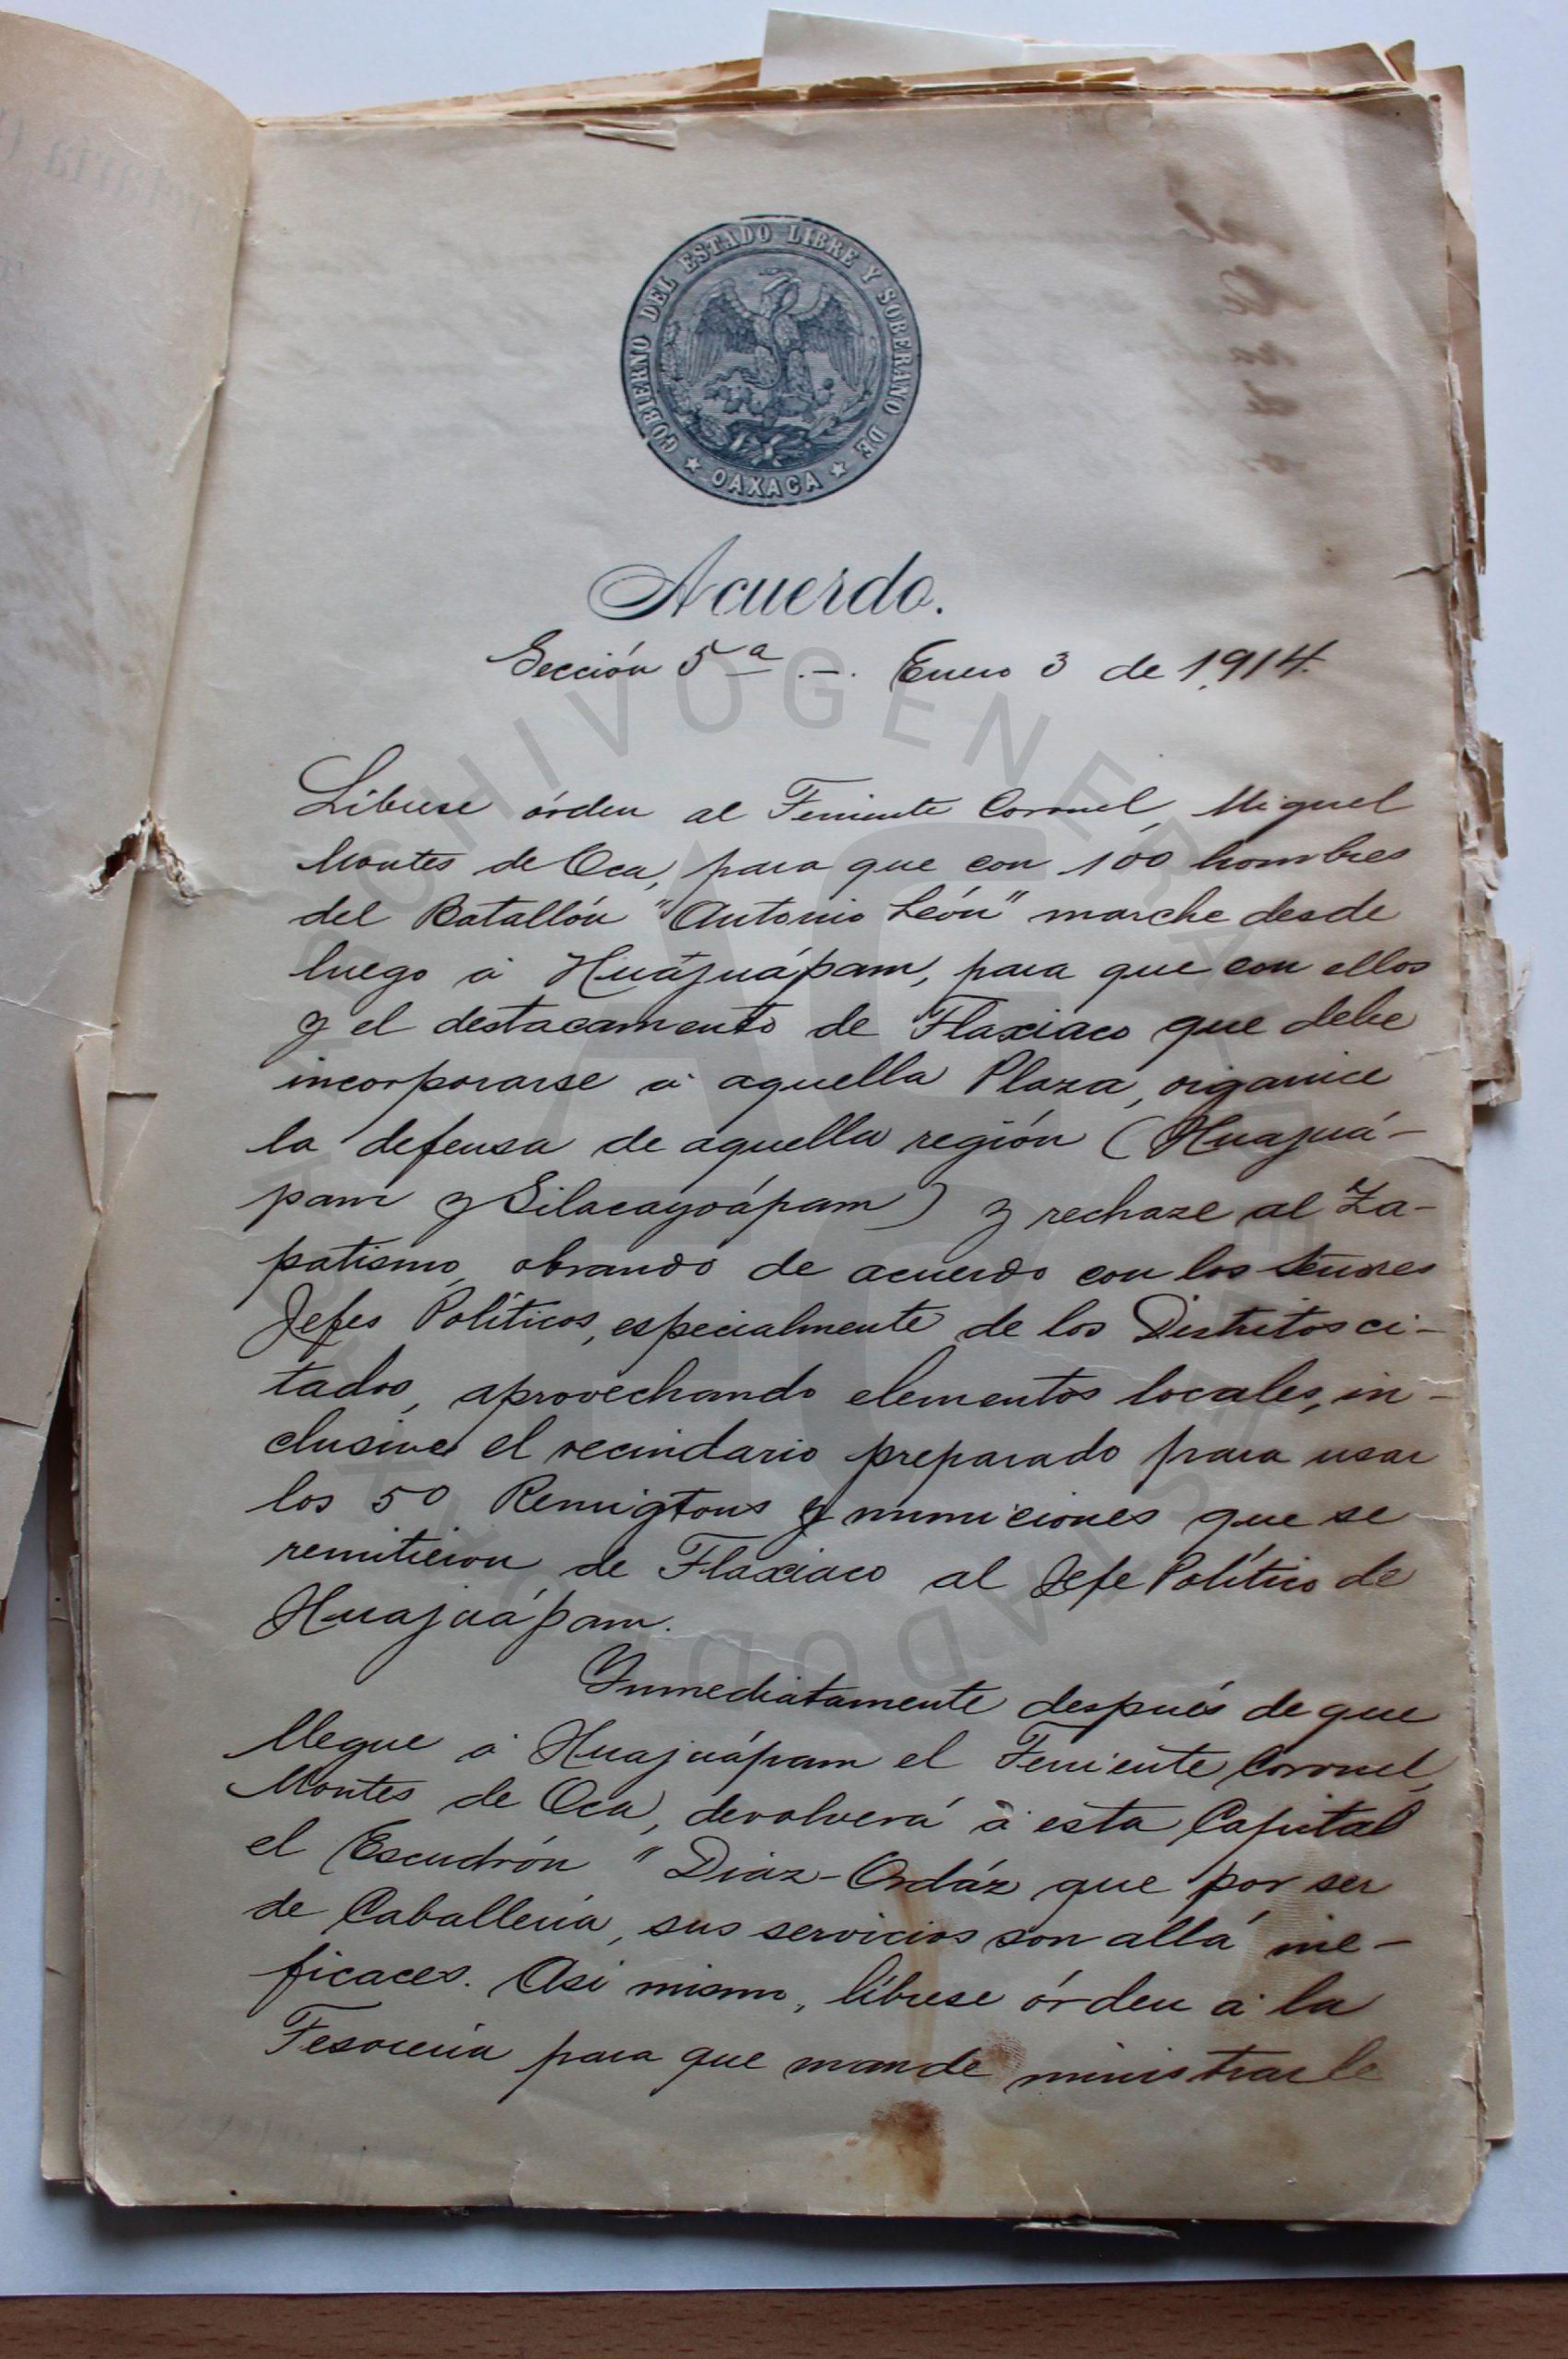 GOBIERNO DEL ESTADO LIBRE Y SOBERANO DE
OAXACA
Acuerdo.
Sección 5ª .-. Enero 3 de 1,914.
Líbrese órden al Teniente Coronel, Miguel
Montes de Oca, para que con 100 hombres
del Batallón "Antonio León" marche desde
luego á Huájuápam, para que con ellos
y el destacamento de Tlaxiaco que debe
incorporarse á aquella Plaza, organice
la defensa de aquella región (Huajuá-
pam y Silacayoápam) y rechaze al Za-
patismo, obrando de acuerdo con los Señores
Jefes Políticos, especialmente de los Distritos ci-
tados, aprovechando elementos locales, in-
clusive el vecindario preparado para usar
los 50 Remigtons y municiones que se
remitieron de Tlaxiaco al Jefe Político de
Huajuápam.
Inmediatamente después de que
llegue á Huajuápam el Teniente Coronel,
Montes de Oca, devolverá á esta Capital
el Escudrón "Diaz-Ordáz que por ser
de Caballería, sus servicios son allá ine-
ficaces. Asi mismo, líbrese órden á la
Tesorería para que mande ministrarle
ARCHIVO GENERAL DEL ESTADO DE OAXACA